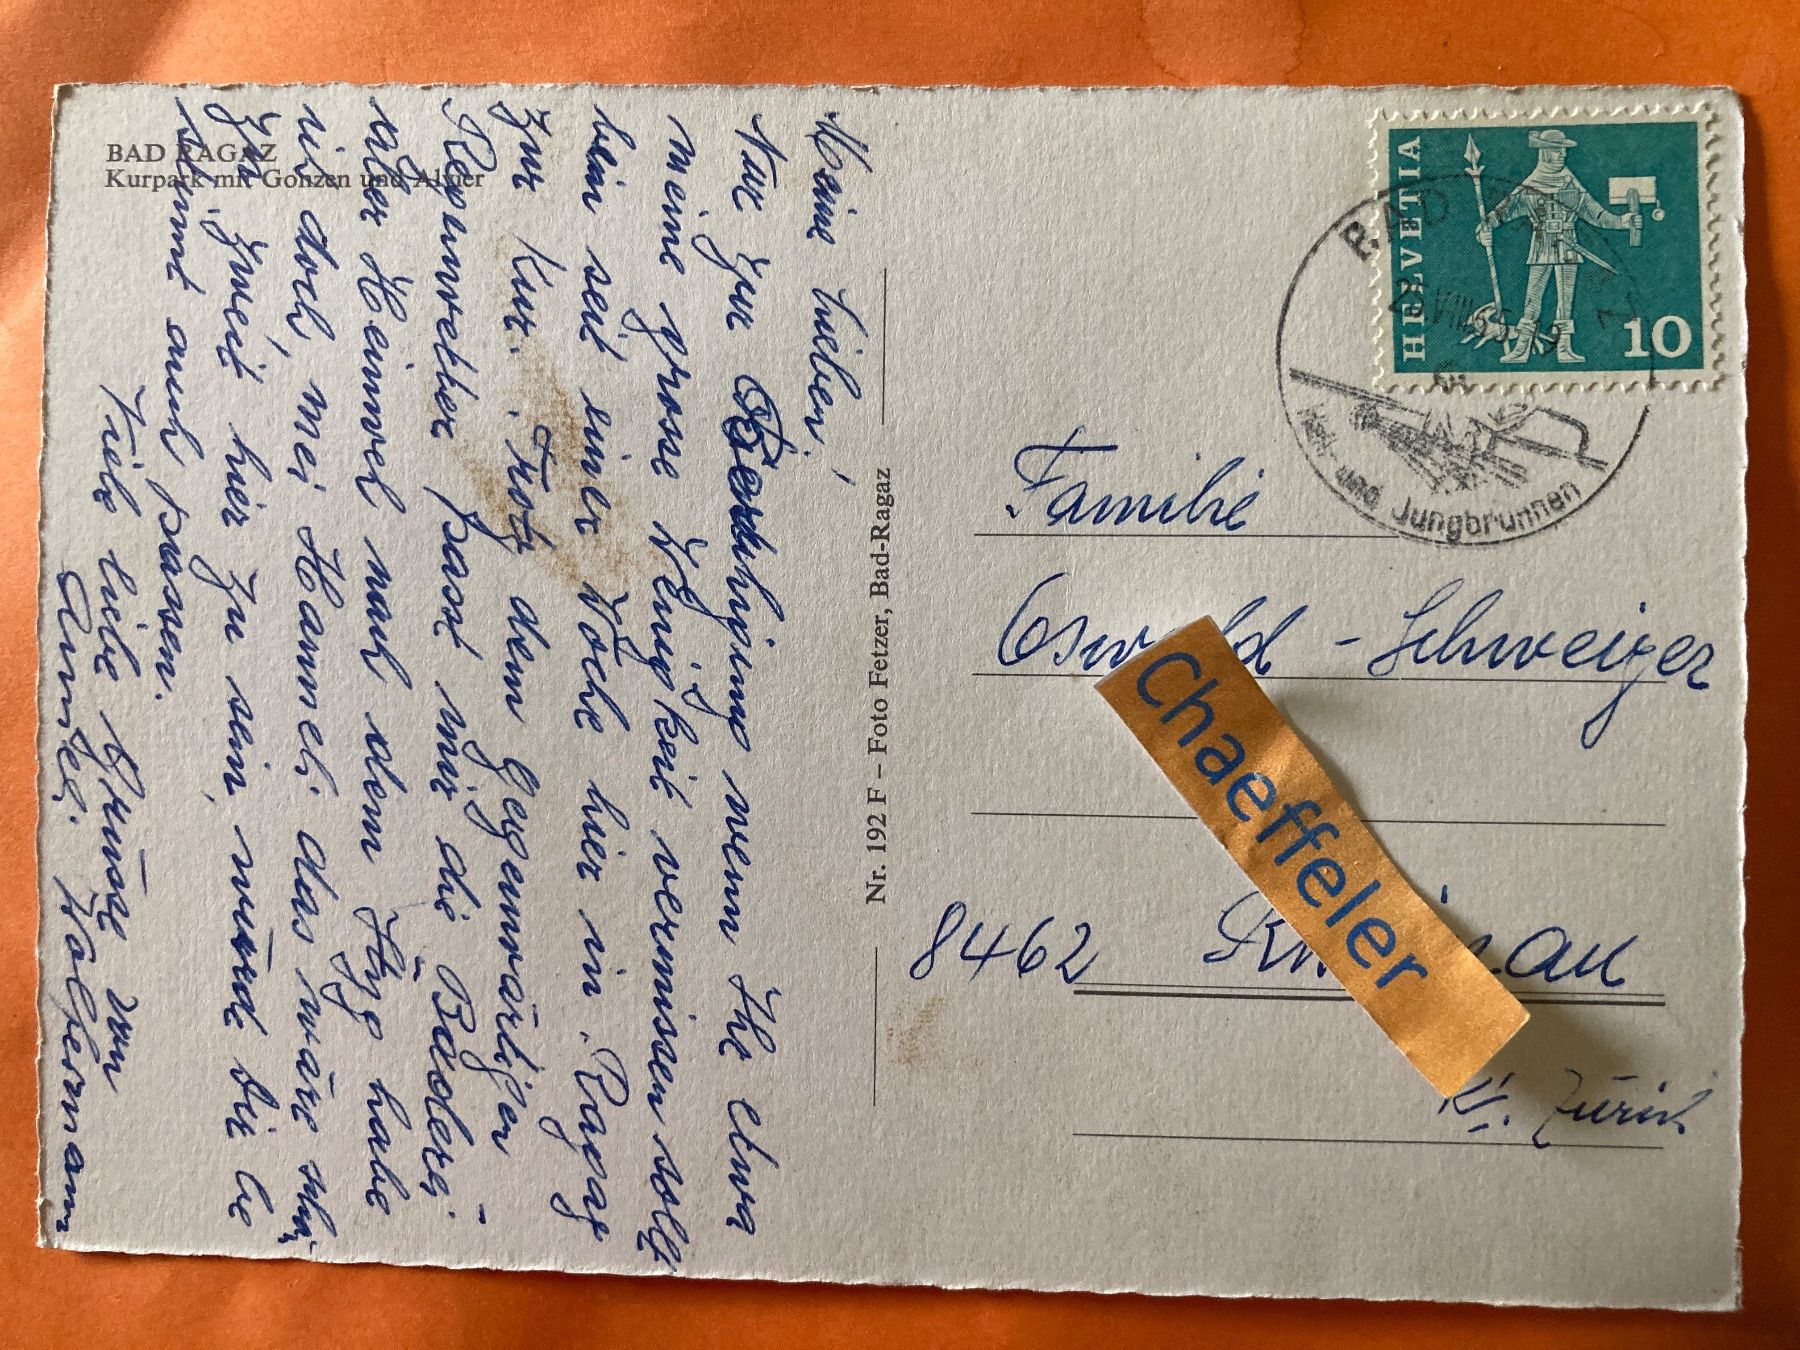 BAD RAGAZ
Kurpark mit Gonzen und Alvier
Meine Lieben,
Nur zur Beruhigung wenn Ihr etwa
meine grosse Wenigkeit vermissen sollt
bin seit einer Woche hier in Ragaz
zur Kur. Trotz dem gegenwärtigen
Regenwetter passt mir die Bäderei
aber Heimweh nach dem Hügo habe
ich doch, mei Hanneli das wäre schön
zu zweit hier zu sein, würde Dir be
stimmt auch passen.
Viele liebe Grüsse von
Nr. 192 F – Foto Fetzer, Bad-Ragaz
HELVETIA
10
BAD RAGAZ
Heil- und Jungbrunnen
Familie
Oswald - Schweizer
Chaeffeler
8462 Rheinau
Kt. Zürich